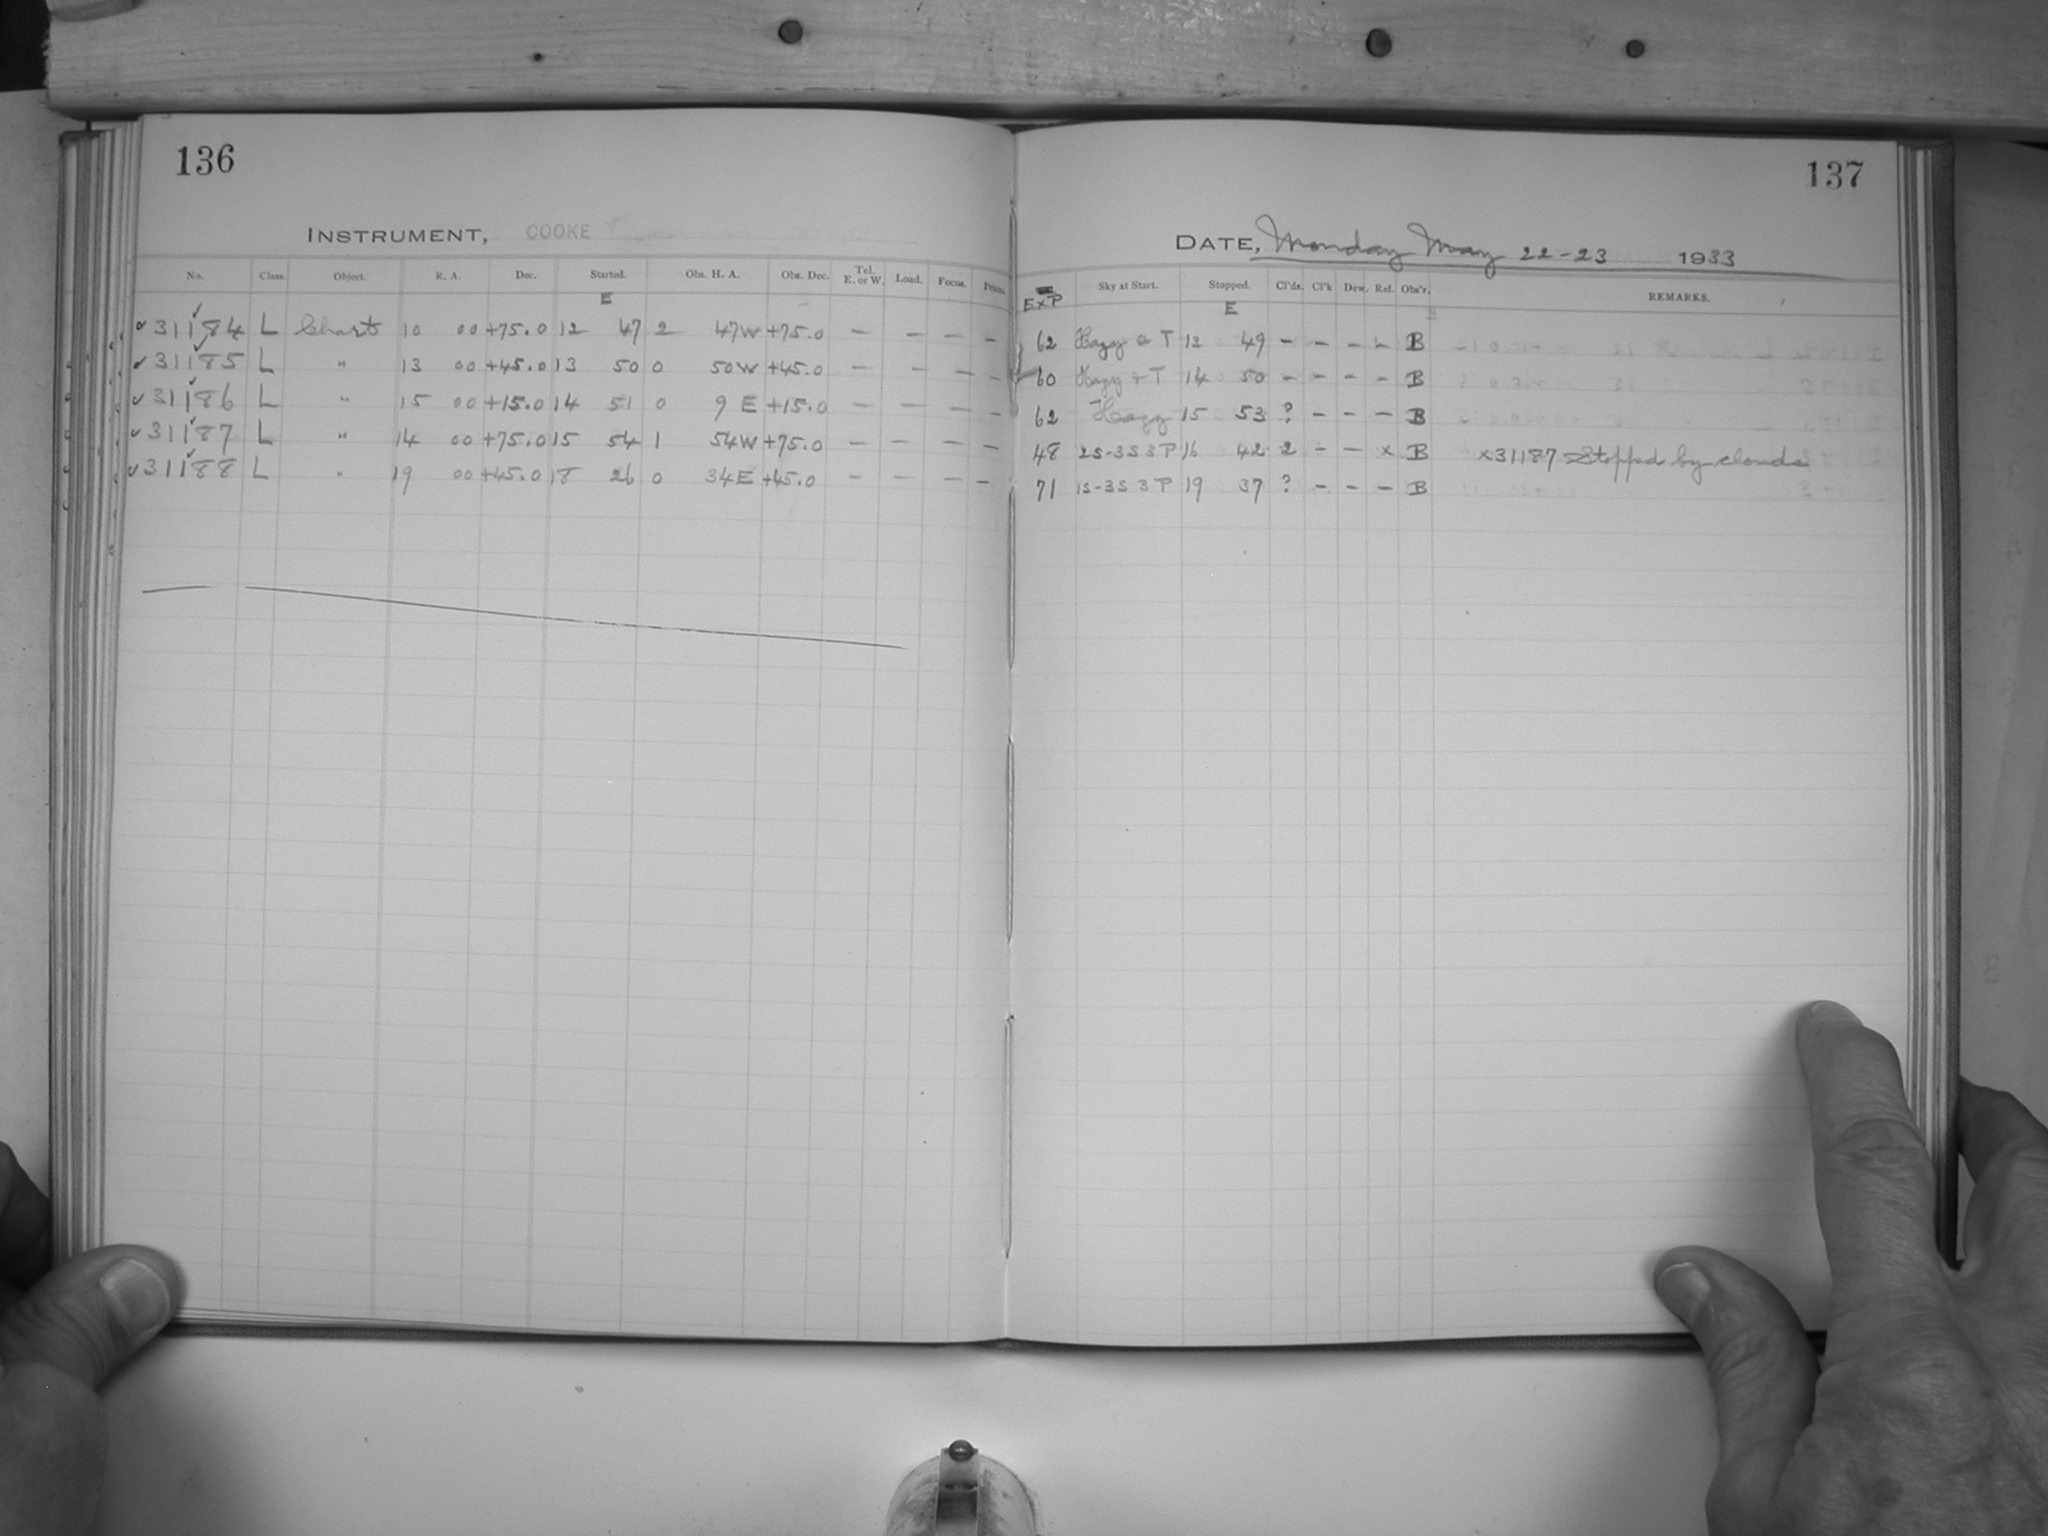 136
INSTRUMENT, COOKE
No. Class. Object. R. A. Dec. Started. Obs. H. A. Obs. Dec. Tel. E. or W. Load. Focus. Prisms.
E
31184 L Chart 10 00 +75.0 12 47 2 47W +75.0 — — — —
31185 L " 13 00 +45.0 13 50 0 50W +45.0 — — — —
31186 L " 15 00 +15.0 14 51 0 9 E +15.0 — — — —
31187 L " 14 00 +75.0 15 54 1 54W +75.0 — — — —
31188 L " 19 00 +45.0 18 26 0 34E +45.0 — — — —
137
DATE, Monday May 22-23 1933
EXP Sky at Start. Stopped. Cl'ds. Cl'k Dew. Ref. Obs'r. REMARKS.
E
62 Hazy & T 13 49 - - - - B
60 Hazy & T 14 50 - - - - B
62 Hazy 15 53 ? - - - B
48 2S-3S 3P 16 42 2 - - x B x31187 Stopped by clouds
71 1S-3S 3P 19 37 ? - - - B